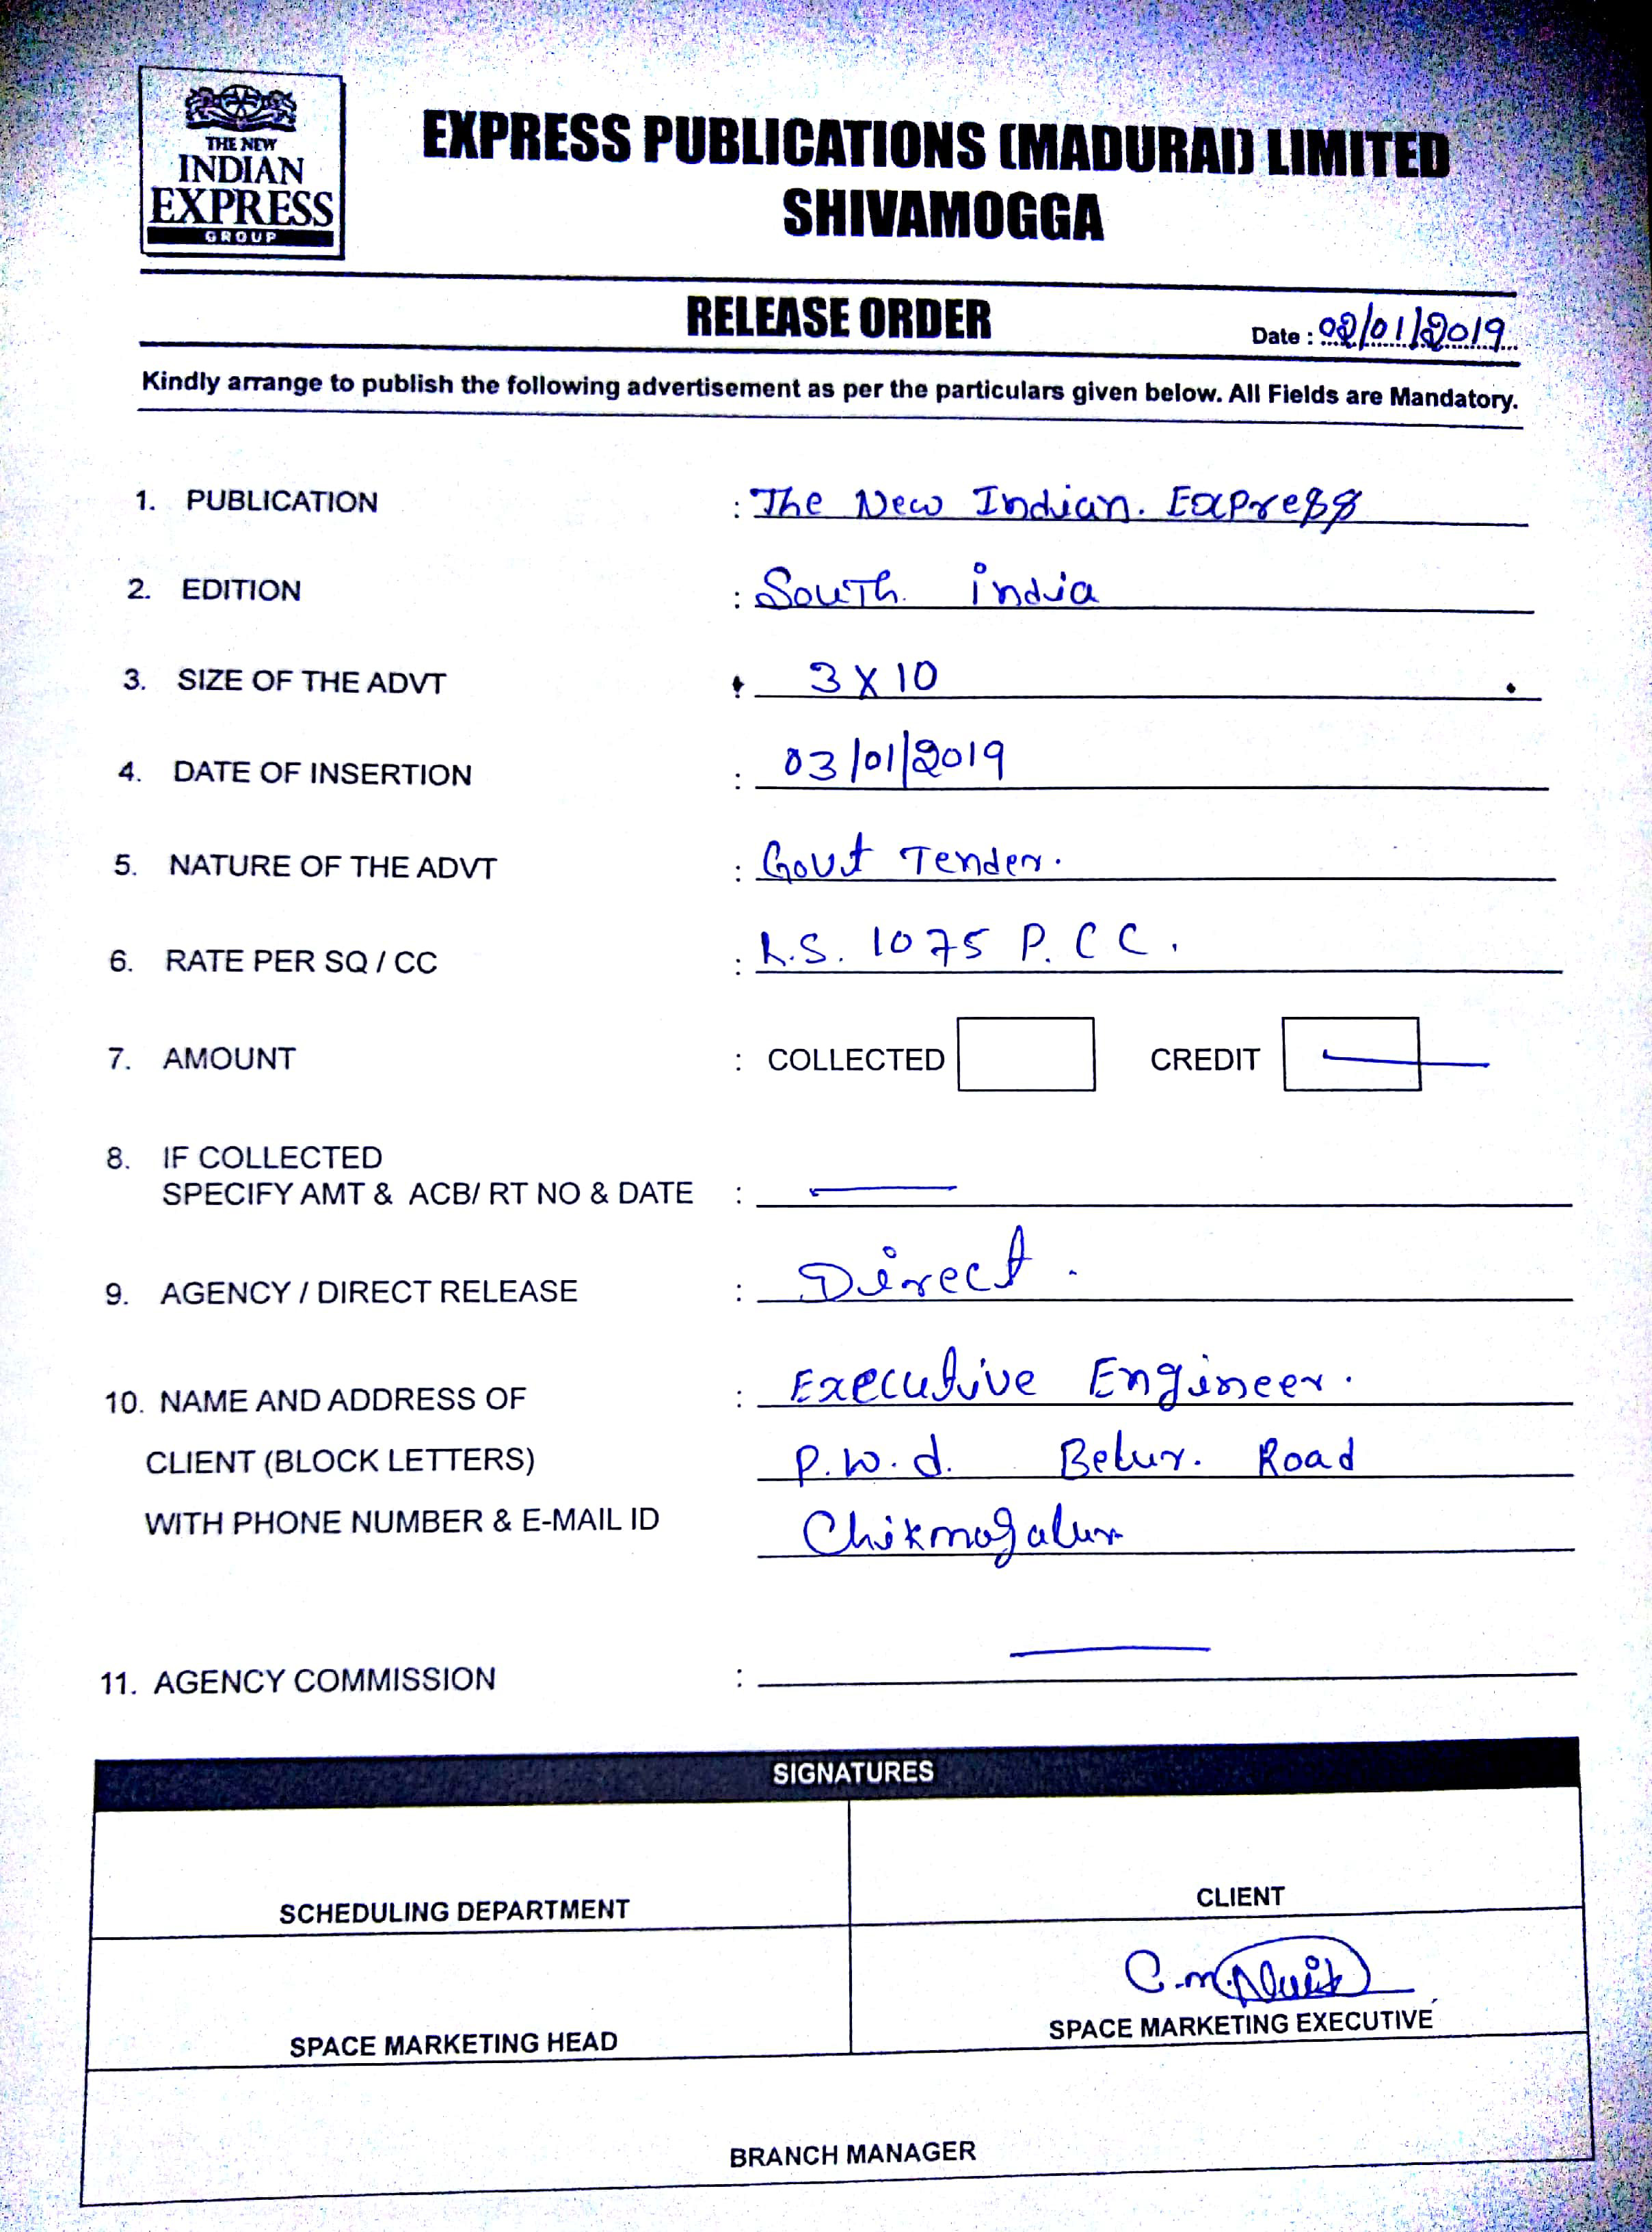 THE NEW
INDIAN
EXPRESS
GROUP
EXPRESS PUBLICATIONS (MADURAI) LIMITED
SHIVAMOGGA
RELEASE ORDER
Date : 02/01/2019
Kindly arrange to publish the following advertisement as per the particulars given below. All Fields are Mandatory.
1. PUBLICATION : The New Indian. Express
2. EDITION : South. india
3. SIZE OF THE ADVT : 3 X 10
4. DATE OF INSERTION : 03/01/2019
5. NATURE OF THE ADVT : Govt Tender.
6. RATE PER SQ / CC : 1075 P. C C.
7. AMOUNT : COLLECTED CREDIT
8. IF COLLECTED
SPECIFY AMT & ACB/ RT NO & DATE :
9. AGENCY / DIRECT RELEASE : Direct.
10. NAME AND ADDRESS OF : Executive Engineer.
CLIENT (BLOCK LETTERS) P.W.d. Belur. Road
WITH PHONE NUMBER & E-MAIL ID Chikmagalur
11. AGENCY COMMISSION :
SIGNATURES
SCHEDULING DEPARTMENT
CLIENT
C.m.
SPACE MARKETING HEAD
SPACE MARKETING EXECUTIVE
BRANCH MANAGER